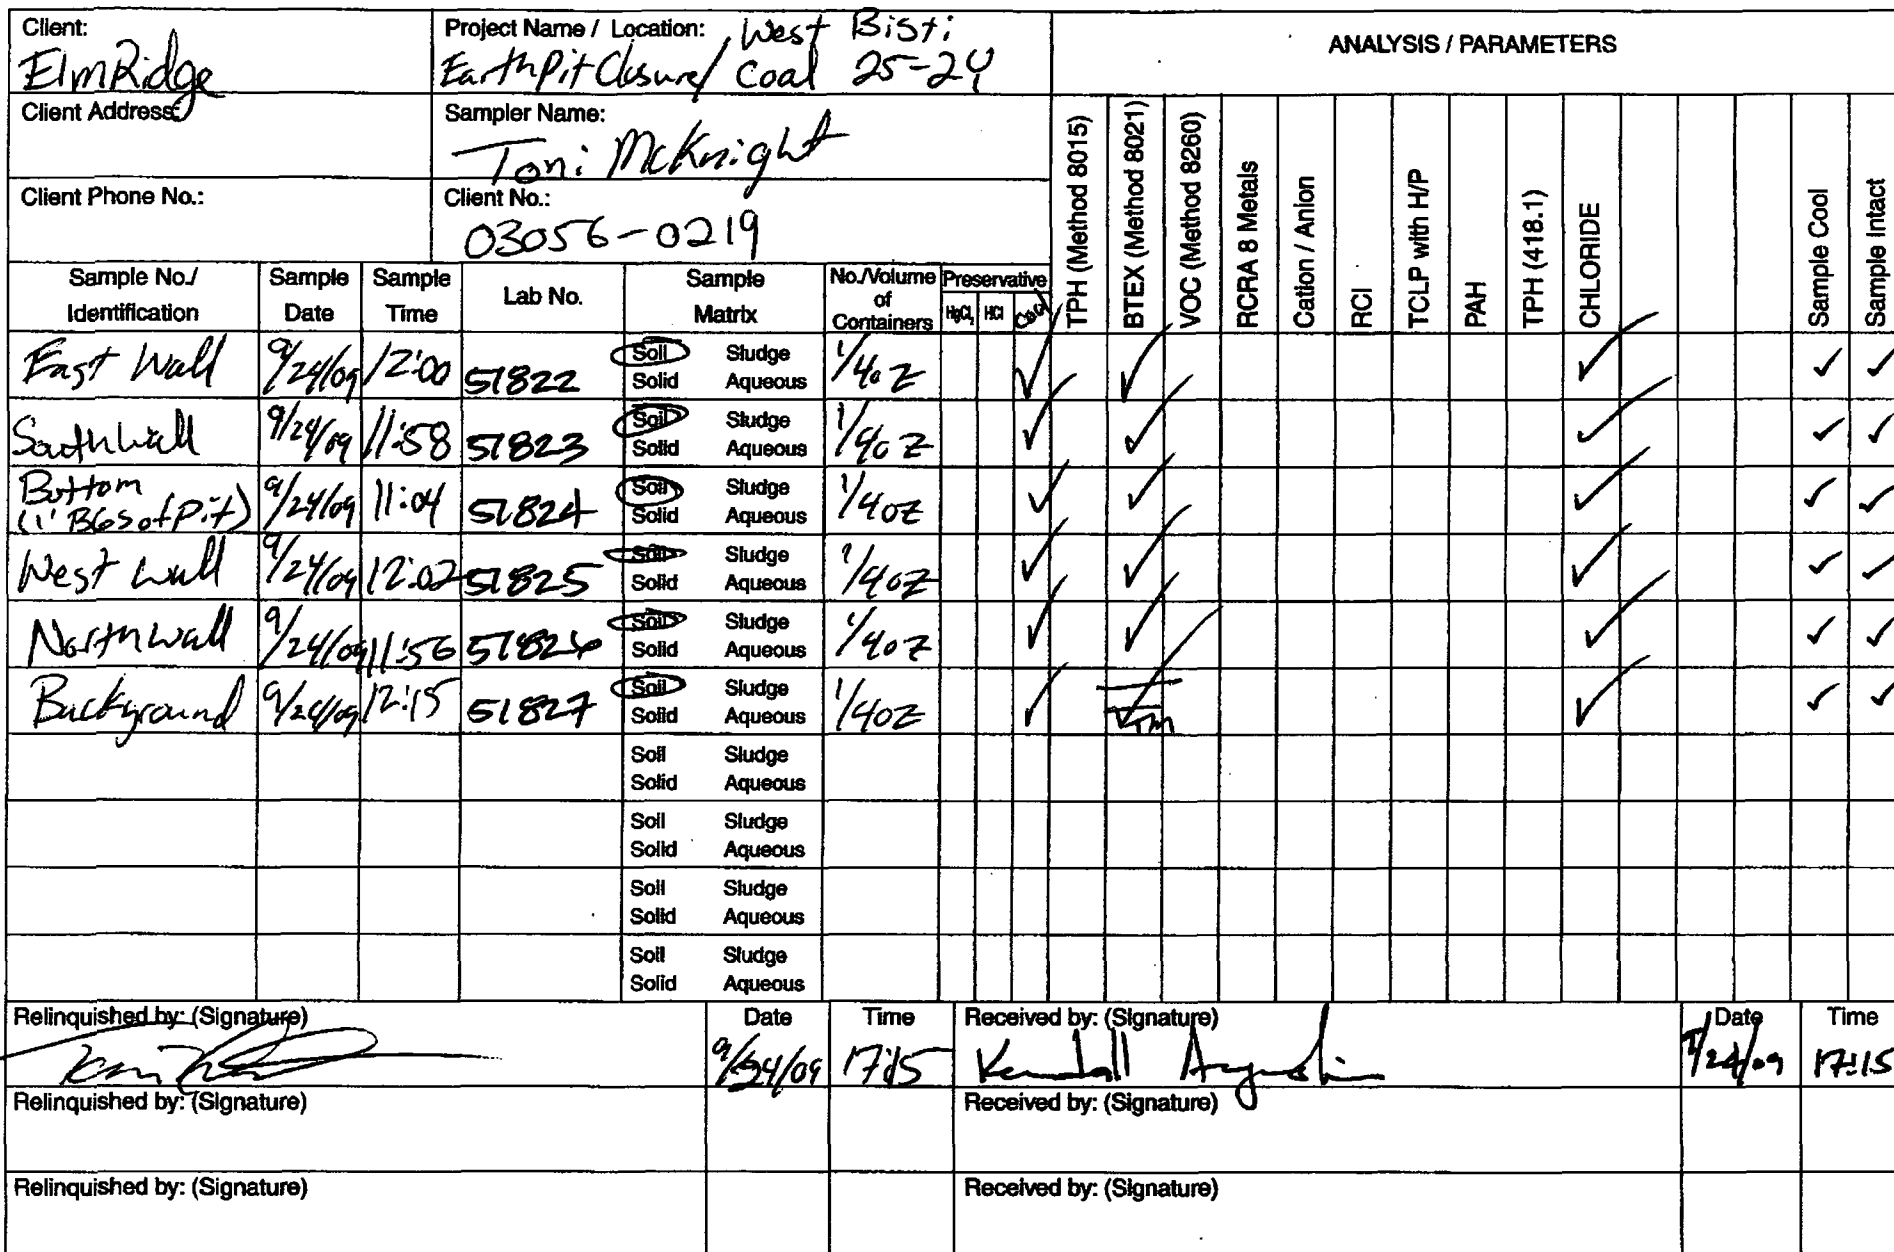 Client:
ElmRidge
Project Name / Location: West Bisti
Earth Pit Closure/ Coal 25-24
ANALYSIS / PARAMETERS
Client Address:
Sampler Name:
Toni McKnight
Client Phone No.:
Client No.:
03056-0219
Sample No./ Identification Sample Date Sample Time Lab No. Sample Matrix No./Volume of Containers Preservative HgCl₂ HCl Cool
TPH (Method 8015) BTEX (Method 8021) VOC (Method 8260) RCRA 8 Metals Cation / Anion RCI TCLP with H/P PAH TPH (418.1) CHLORIDE Sample Cool Sample Intact
East Wall 9/24/09 12:00 51822 Soil Sludge 1/4oz ✓ ✓ ✓ ✓ ✓
Solid Aqueous
South Wall 9/24/09 11:58 51823 Soil Sludge 1/4oz ✓ ✓ ✓ ✓ ✓
Solid Aqueous
Bottom
(1' BGS of Pit) 9/24/09 11:04 51824 Soil Sludge 1/4oz ✓ ✓ ✓ ✓ ✓
Solid Aqueous
West Wall 9/24/09 12:02 51825 Soil Sludge 1/4oz ✓ ✓ ✓ ✓ ✓
Solid Aqueous
North Wall 9/24/09 11:56 51826 Soil Sludge 1/4oz ✓ ✓ ✓ ✓ ✓
Solid Aqueous
Background 9/24/09 12:15 51827 Soil Sludge 1/4oz ✓ ✓ TM ✓ ✓ ✓
Solid Aqueous
Soil Sludge
Solid Aqueous
Soil Sludge
Solid Aqueous
Soil Sludge
Solid Aqueous
Soil Sludge
Solid Aqueous
Relinquished by: (Signature) Date Time Received by: (Signature) Date Time
9/24/09 17:15 Kendall 9/24/09 17:15
Relinquished by: (Signature) Received by: (Signature)
Relinquished by: (Signature) Received by: (Signature)